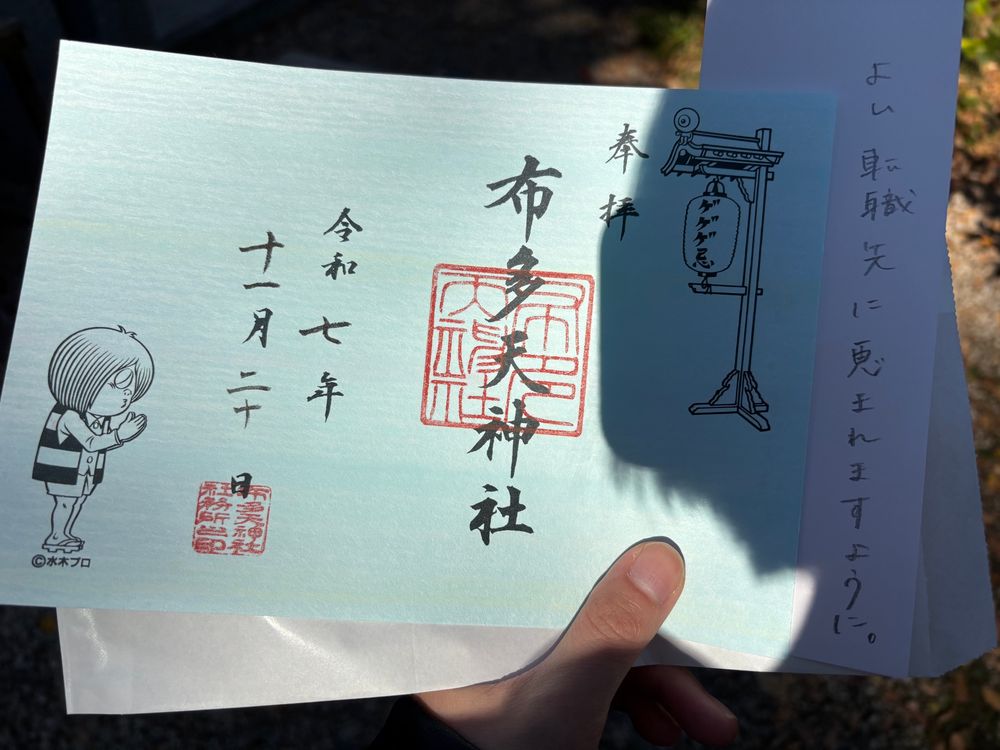 よい転職先に恵まれますように。
奉拝
ゲゲゲ忌
布多天神社
令和七年
十一月二十日
布多天神社
社務所之印
©水木プロ